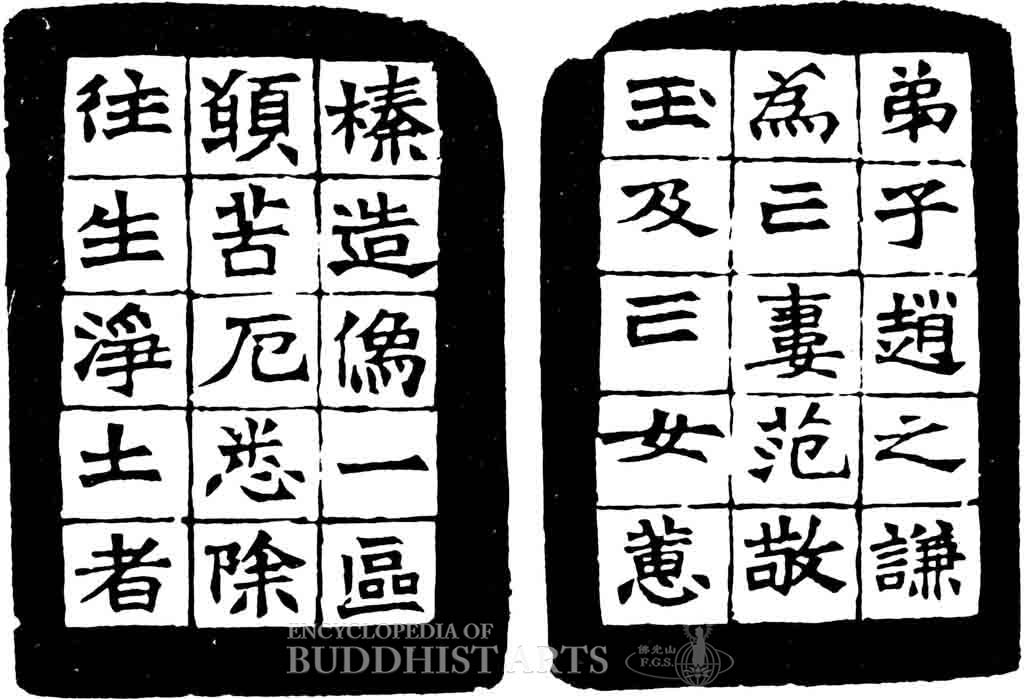 弟子趙之謙
為亡妻范敬
玉及亡女蕙
榛造像一區
願苦厄悉除
往生淨土者
ENCYCLOPEDIA OF
BUDDHIST ARTS
佛光山
F.G.S.